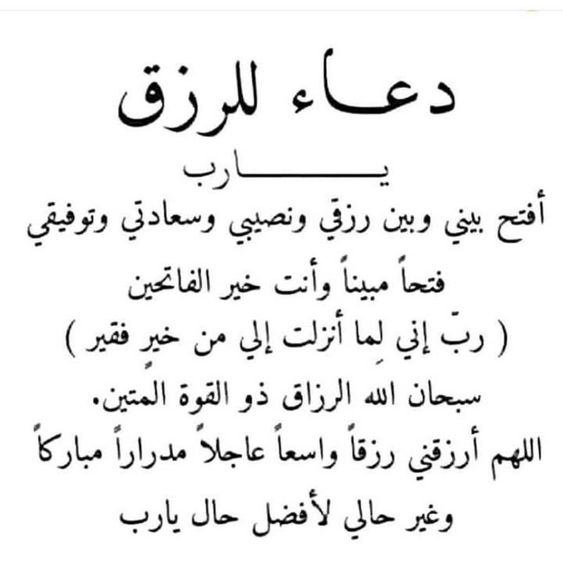 دعـــاء للرزق
يـــــــــارب
أفتح بيني وبين رزقي ونصيبي وسعادتي وتوفيقي
فتحاً مبيناً وأنت خير الفاتحين
( ربّ إني لِما أنزلت إلي من خيرٍ فقير )
سبحان الله الرزاق ذو القوة المتين.
اللهم أرزقني رزقاً واسعاً عاجلاً مدراراً مباركاً
وغير حالي لأفضل حال يارب